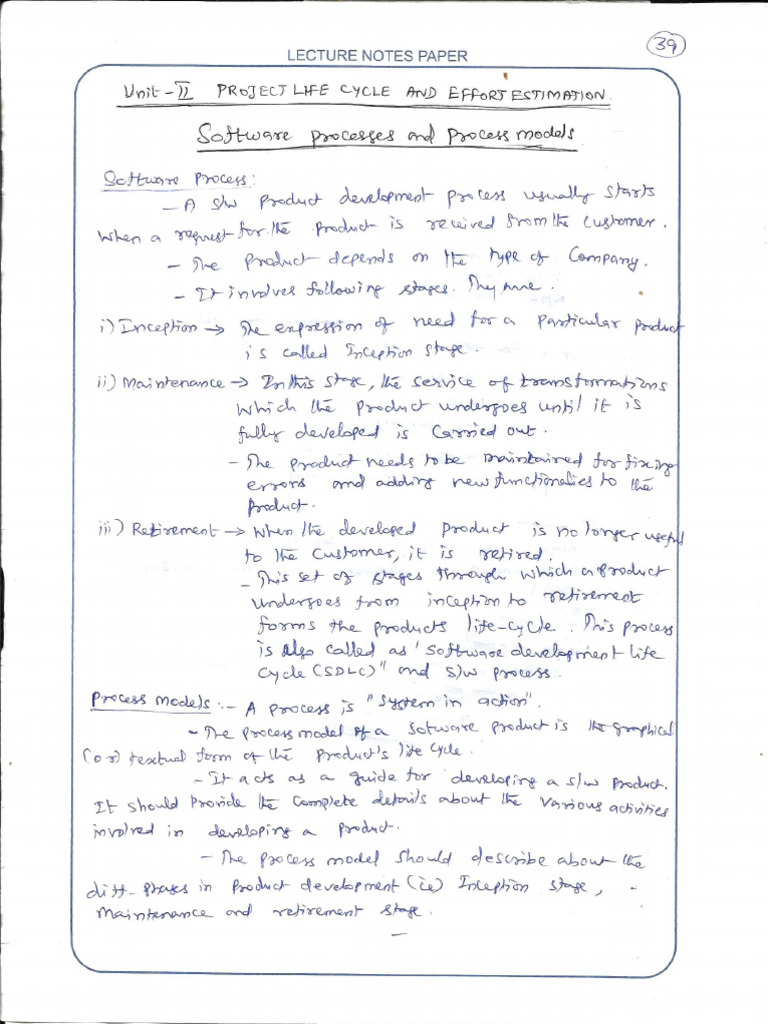 39
LECTURE NOTES PAPER
Unit-II PROJECT LIFE CYCLE AND EFFORT ESTIMATION.
Software processes and process models.
Software Process:
- A s/w product development process usually starts
when a request for the product is received from the customer.
- The product depends on the type of company.
- It involves following stages. They are.
i) Inception → The expression of need for a particular product
is called Inception stage.
ii) Maintenance → In this stage, the service of transformations
which the product undergoes until it is
fully developed is carried out.
- The product needs to be maintained for fixing
errors and adding new functionalies to the
product.
iii) Retirement → when the developed product is no longer useful
to the customer, it is retired.
- This set of stages through which a product
undergoes from inception to retirement
forms the products life-cycle. This process
is also called as "software development life
cycle (SDLC)" and s/w process.
Process models:- A process is "System in action".
- The process model of a software product is the graphical
(or) textual form of the product's life cycle.
- It acts as a guide for developing a s/w product.
It should provide the complete details about the various activities
involved in developing a product.
- The process model should describe about the
diff- phases in product development (ie) Inception stage,
maintenance and retirement stage.